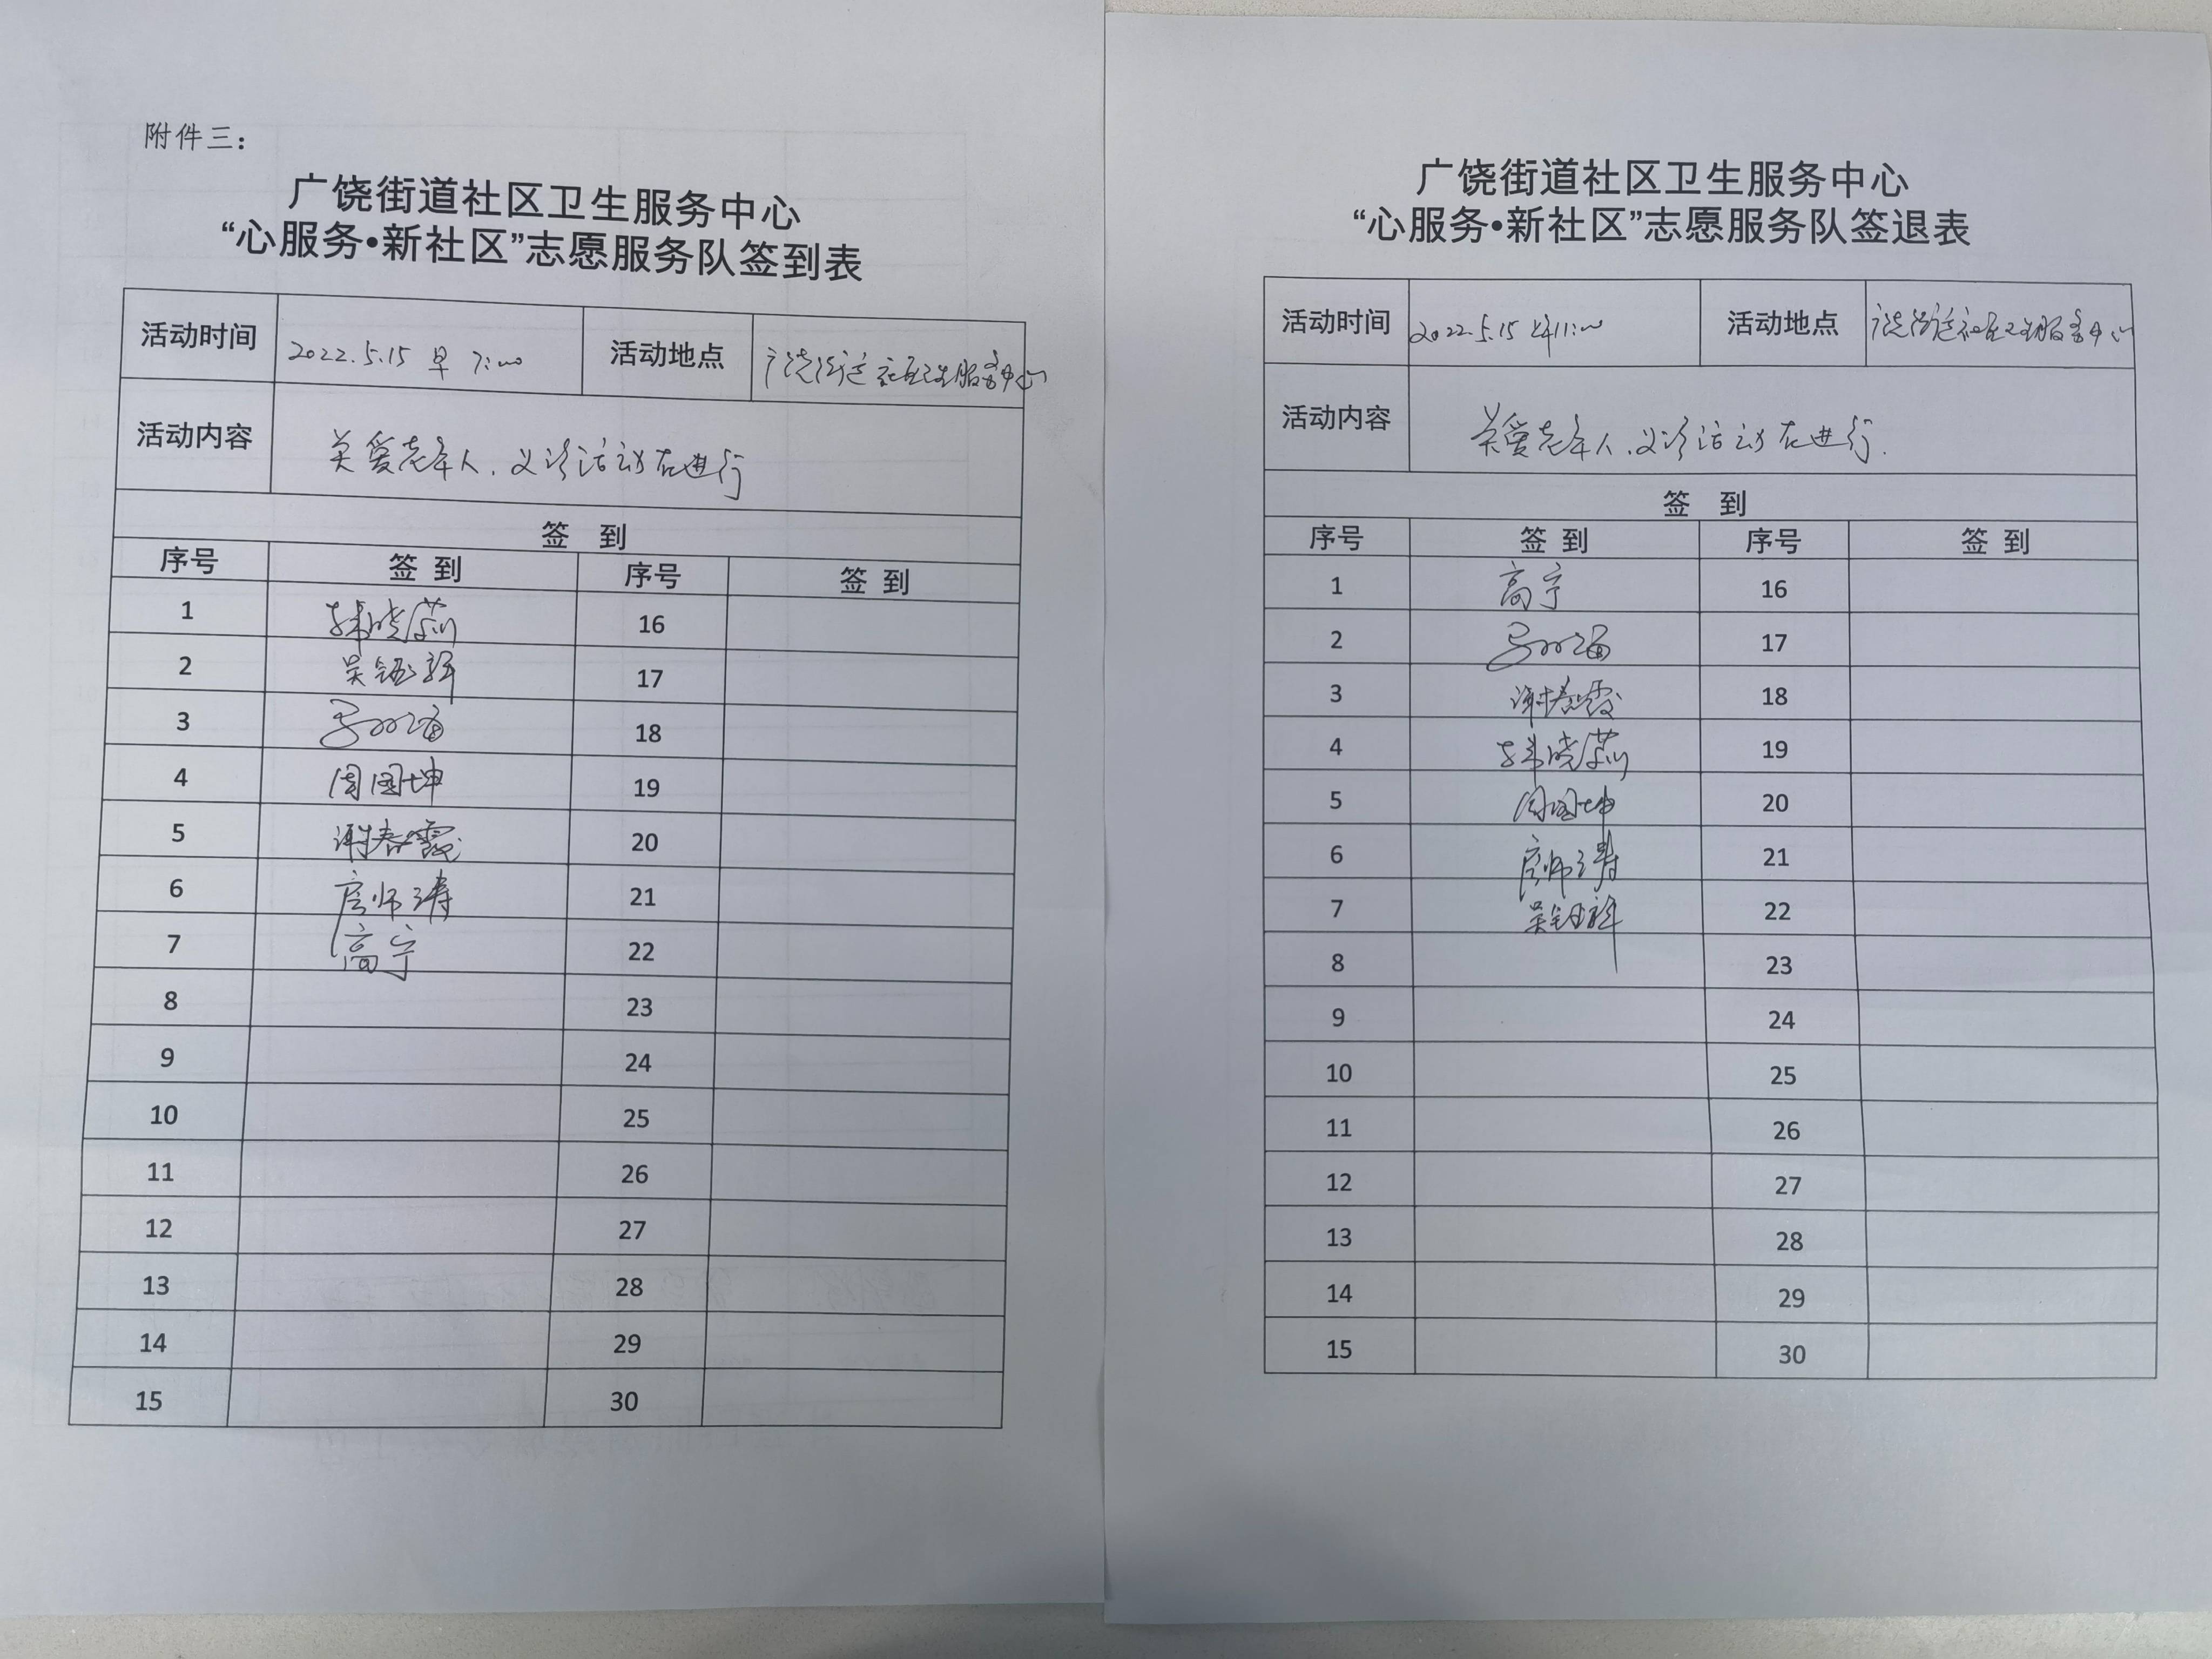 附件三：
广饶街道社区卫生服务中心
“心服务•新社区”志愿服务队签到表
活动时间 2022.5.15 早 7:00 活动地点 广饶街道社区卫生服务中心
活动内容 关爱老年人，义诊活动在进行
签 到
序号 签 到 序号 签 到
1 韩晓燕 16
2 吴钰 17
3 18
4 周国坤 19
5 谢春霞 20
6 房师涛 21
7 高宁 22
8 23
9 24
10 25
11 26
12 27
13 28
14 29
15 30
广饶街道社区卫生服务中心
“心服务•新社区”志愿服务队签退表
活动时间 2022.5.15 11:00 活动地点 广饶街道社区卫生服务中心
活动内容 关爱老年人，义诊活动在进行.
签 到
序号 签 到 序号 签 到
1 高宁 16
2 17
3 谢春霞 18
4 韩晓燕 19
5 周国坤 20
6 房师涛 21
7 吴钰 22
8 23
9 24
10 25
11 26
12 27
13 28
14 29
15 30